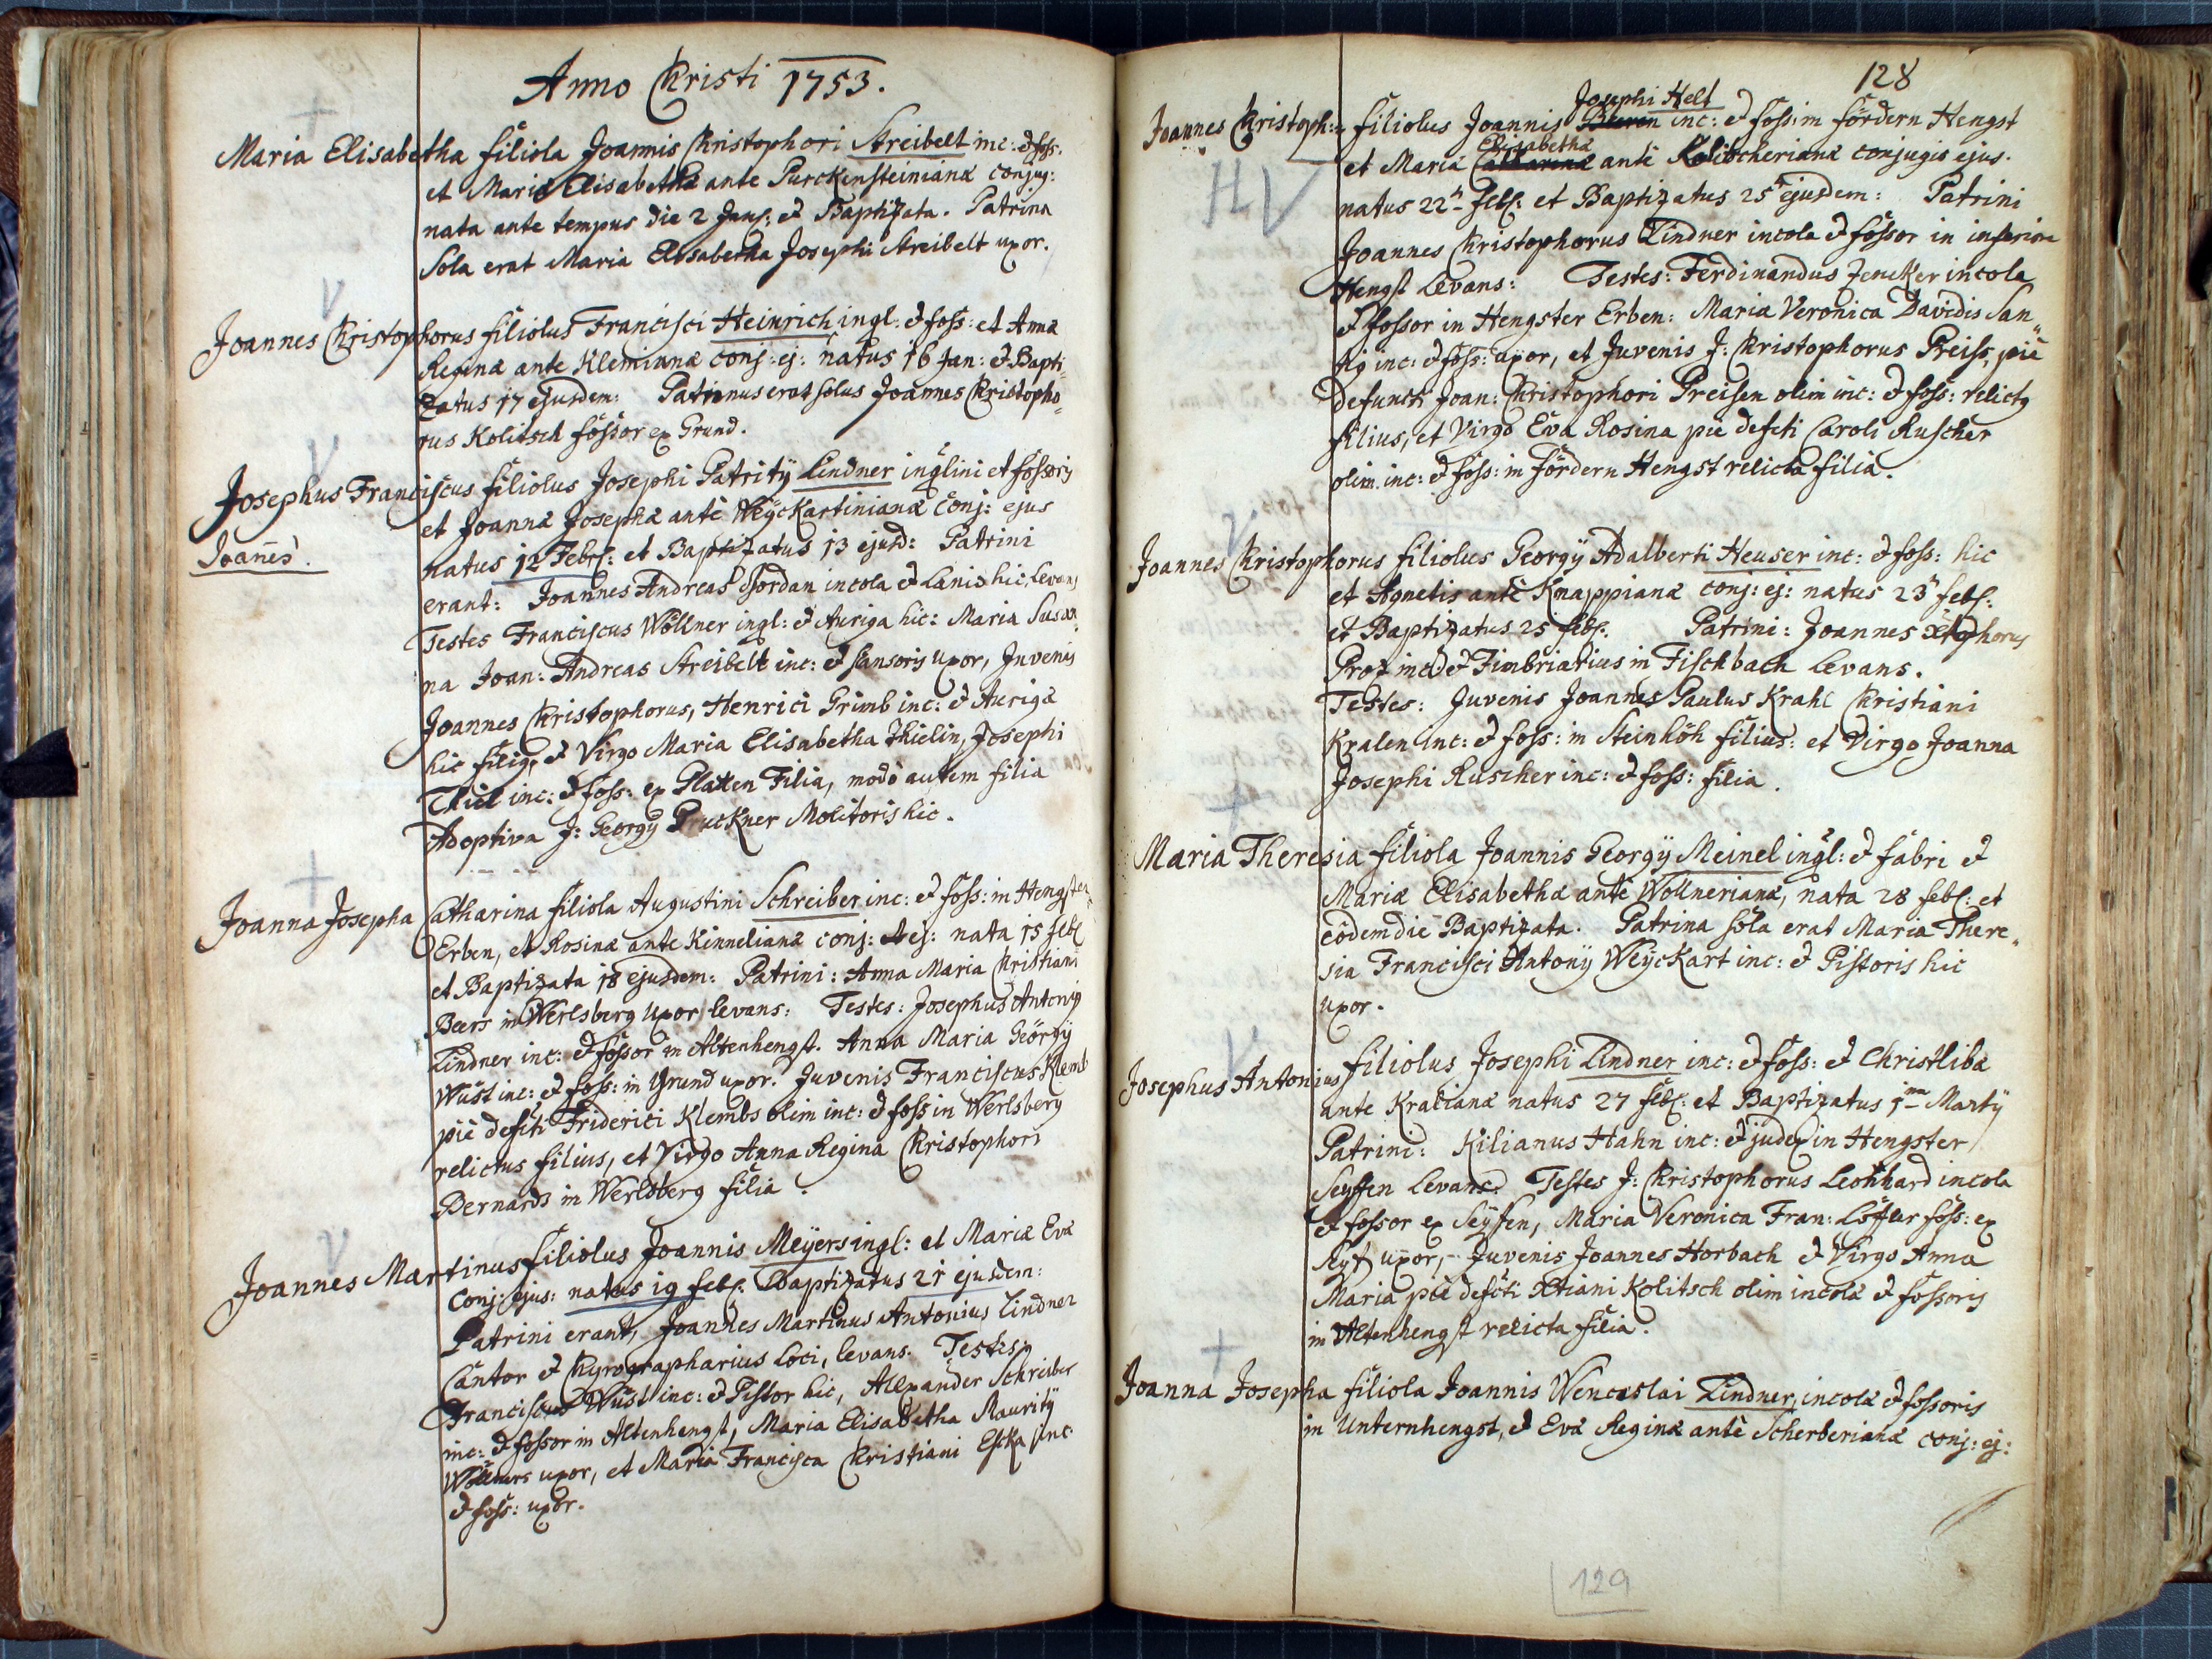 Anno Christi 1753.
Maria Elisabetha filiola Joannis Christophori Streibelt inc: & foss:
et Mariæ Elisabethæ ante Purckensteinianæ conjug:
nata ante tempus die 2 Jan: & Baptizata. Patrina
Sola erat Maria Elisabetha Josephi Streibelt uxor.
Joannes Christophorus filiolus Francisci Heinrich ingl: & foss: et Annæ
Reginæ ante Klemianæ conj: ej: natus 16 Jan: & Bapti„
zatus 17 ejusdem: Patrinus erat solus Joannes Christopho„
rus Kolitsch fossor ex Grund.
Josephus Franciscus filiolus Josephi Patritij Lindner inqlini et fossoris
Joañes.
et Joannæ Josephæ antè Weÿckartinianæ Conj: ejus
natus 12 Febr: et Baptizatus 13 ejusd: Patrini
erant: Joannes Andreas Jordan incola & Lanio hic, levans
Testes Franciscus Wöllner ingl: & Auriga hic: Maria Susan„
na Joan: Andreas Streibelt inc: & uxor, Juvenis
Joannes Christophorus, Henrici Grimb inc: & Aurigæ
hic filiq, & Virgo Maria Elisabetha Thielin, Josephi
Thiel inc: & foss: ex Platten Filia, modò autem filia
Adoptiva J: Georgÿ Pruckner Molitoris hic.
Joanna Josepha Catharina filiola Augustini Schreiber inc: & foss: in Hengster
Erben, et Rosinæ ante Kinnelianæ conj: ej: nata 15 feb:
et Baptizata 18 ejusdem: Patrini: Anna Maria Christiani
Beers in Werlsberg uxor levans: Testes: Josephus Antoniq
Lindner inc: & fossor in Altenhengst. Anna Maria Georgÿ
Wüst inc: & foss: in Grund uxor. Juvenis Franciscus Klemb
piè defcti Friderici Klembs olim inc: & foss in Werlsberg
relictus filius, et Virgo Anna Regina Christophori
Bernards in Werlsberg filia.
Joannes Martinus filiolus Joannis Meÿers ingl: et Mariæ Evæ
conj: ejus: natus 19 feb: Baptizatus 21 ejusdem:
Patrini erant, Joannes Martinus Antonius Lindner
Cantor & Chyrographarius Loci, levans. Testes:
Franciscus Wüst inc: & Pistor hic, Alexander Schreiber
inc: & fossor in Altenhengst, Maria Elisabetha Mauritÿ
Wöllners uxor, et Maria Francisca Christiani inc:
& foss: uxor.
128
Josephi Helt
Joannes Christoph: filiolus Joannis inc: & foss: in fördern Hengst
Elisabetha
et Mariæ Catharinæ antè Kolitscherianæ conjugis ejus.
HV
natus 22 feb: et Baptizatus 25 ejusdem: Patrini
Joannes Christophorus Lindner incola & fossor in inferiore
Hengst Levans: Testes: Ferdinandus Jencker incola
& fossor in Hengster Erben: Maria Veronica Davidis San„
tig inc: & foss: uxor, et Juvenis J: Christophorus Preiss, piè
defuncti Joan: Christophori Preisen olim inc: & foss: relictq
filius, et Virgo Eva Rosina pie defcti Caroli Ruscher
olim inc: & foss: in fördern Hengst relicta filia.
Joannes Christophorus filiolus Georgÿ Adalberti Heuser inc: & foss: hic
et Agnetis antè Knappianæ conj: ej: natus 23 feb:
et Baptizatus 25 feb: Patrini: Joannes Xtophorus
Proz inc: & Fimbriarius in Fischbach levans.
Testes: Juvenis Joannes Paulus Krahl Christiani
Kralen inc: & foss: in Steinhöh filius: et Virgo Joanna
Josephi Ruscher inc: & foss: filia.
Maria Theresia filiola Joannis Georgÿ Meinel ingl: & fabri &
Mariæ Elisabethæ antè Wöllnerianæ, nata 28 feb: et
eòdem die Baptizata. Patrina sola erat Maria There„
sia Francisci Antonÿ Weÿckart inc: & Pistoris hic
uxor.
Josephus Antonius filiolus Josephi Lindner inc: & foss: & Christlibæ
ante Kralianæ natus 27 feb: et Baptizatus 1ma Martÿ
Patrini: Kilianus Hahn inc: & judex in Hengster
Seyffen Levans. Testes J: Christophorus Leonhard incola
& fossor ex Seÿfen, Maria Veronica Fran: Löffler foss: ex
Seyf uxor, Juvenis Joannes Horbach & Virgo Anna
Maria piè defcti Xtiani Kolitsch olim incolæ & fossoris
in Altenhengst relicta filia.
Joanna Josepha filiola Joannis Wenceslai Lindner, incolæ & fossoris
in Unternhengst, & Evæ Reginæ antè Scherberianæ conj: ej:
129